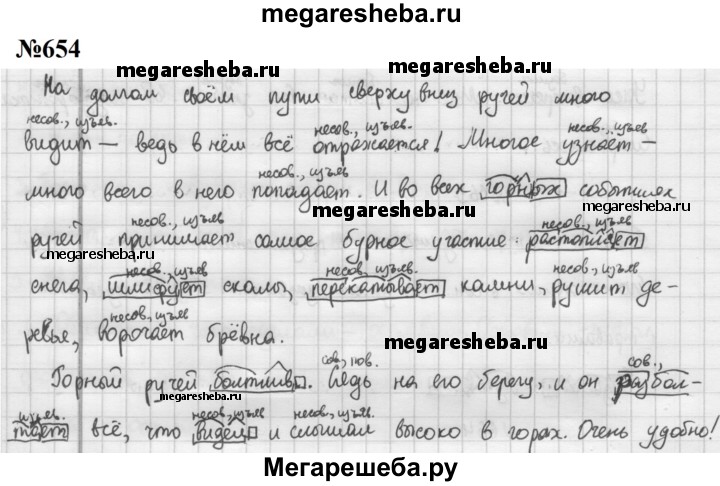 megaresheba.ru
№654
megaresheba.ru megaresheba.ru
На долгом своём пути сверху вниз ручей много
несов., изъяв. несов., изъяв. несов., изъяв
видит – ведь в нём всё отражается! Многое узнает –
несов., изъяв.
много всего в него попадает. И во всех горных событиях
megaresheba.ru megaresheba.ru
несов., изъяв несов., изъяв
ручей принимает самое бурное участие: растопляет
megaresheba.ru
несов., изъяв несов., изъяв несов., изъяв
снега, шлифует скалы, перекатывает камни, рушит де-
несов., изъяв
ревье, ворочает брёвна.
megaresheba.ru
сов., пов. сов.,
Горный ручей болтлив. Сядь на его берегу, и он разбол-
megaresheba.ru
изъяв. несов., изъяв несов., изъяв.
тает всё, что видел и слышал высоко в горах. Очень удобно!
Мегарешеба.ру